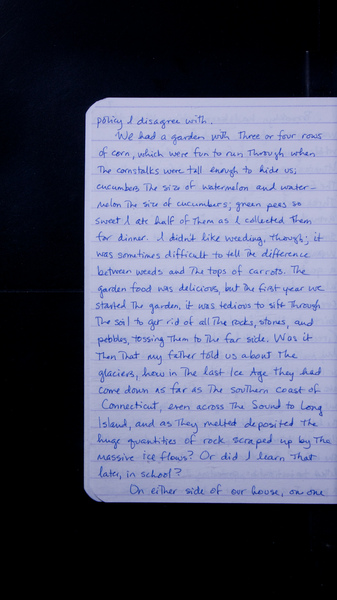 policy I disagree with.
We had a garden with three or four rows
of corn, which were fun to run through when
the cornstalks were tall enough to hide us;
cucumbers the size of watermelon and water-
melon the size of cucumbers; green peas so
sweet I ate half of them as I collected them
for dinner. I didn't like weeding, though; it
was sometimes difficult to tell the difference
between weeds and the tops of carrots. The
garden food was delicious, but the first year we
started the garden, it was tedious to sift through
the soil to get rid of all the rocks, stones, and
pebbles, tossing them to the far side. Was it
then that my father told us about the
glaciers, how in the last Ice Age they had
come down as far as the southern coast of
Connecticut, even across the Sound to Long
Island, and as they melted deposited the
huge quantities of rock scraped up by the
massive ice flows? Or did I learn that
later, in school?
On either side of our house, on one